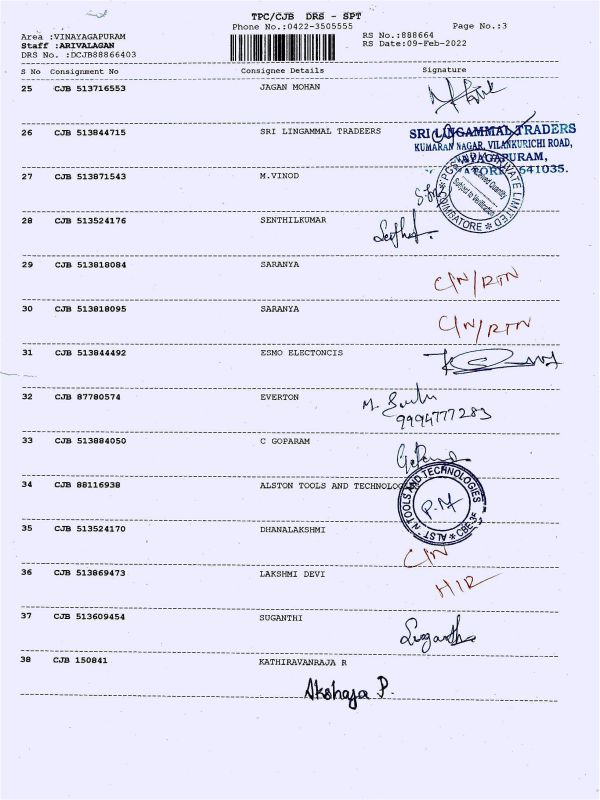 TPC/CJB DRS - SPT
Phone No.:0422-3505555 Page No.:3
Area :VINAYAGAPURAM RS No.:888664
Staff :ARIVALAGAN RS Date:09-Feb-2022
DRS No. :DCJB88866403
S No Consignment No Consignee Details Signature
25 CJB 513716553 JAGAN MOHAN
26 CJB 513844715 SRI LINGAMMAL TRADEERS
SRI LINGAMMAL TRADERS
KUMARAN NAGAR, VILANKURICHI ROAD,
641035.
27 CJB 513871543 M.VINOD
PRIVATE LIMITED
Subject to Verification
28 CJB 513524176 SENTHILKUMAR
29 CJB 513818084 SARANYA C/N/RTN
30 CJB 513818095 SARANYA C/N/RTN
31 CJB 513844492 ESMO ELECTONCIS
32 CJB 87780574 EVERTON
9994777283
33 CJB 513884050 C GOPARAM
34 CJB 88116938 ALSTON TOOLS AND TECHNOLOG
TOOLS AND TECHNOLOGIES
P.M
35 CJB 513524170 DHANALAKSHMI C/N
36 CJB 513869473 LAKSHMI DEVI
37 CJB 513609454 SUGANTHI
38 CJB 150841 KATHIRAVANRAJA R
Akshaja P.